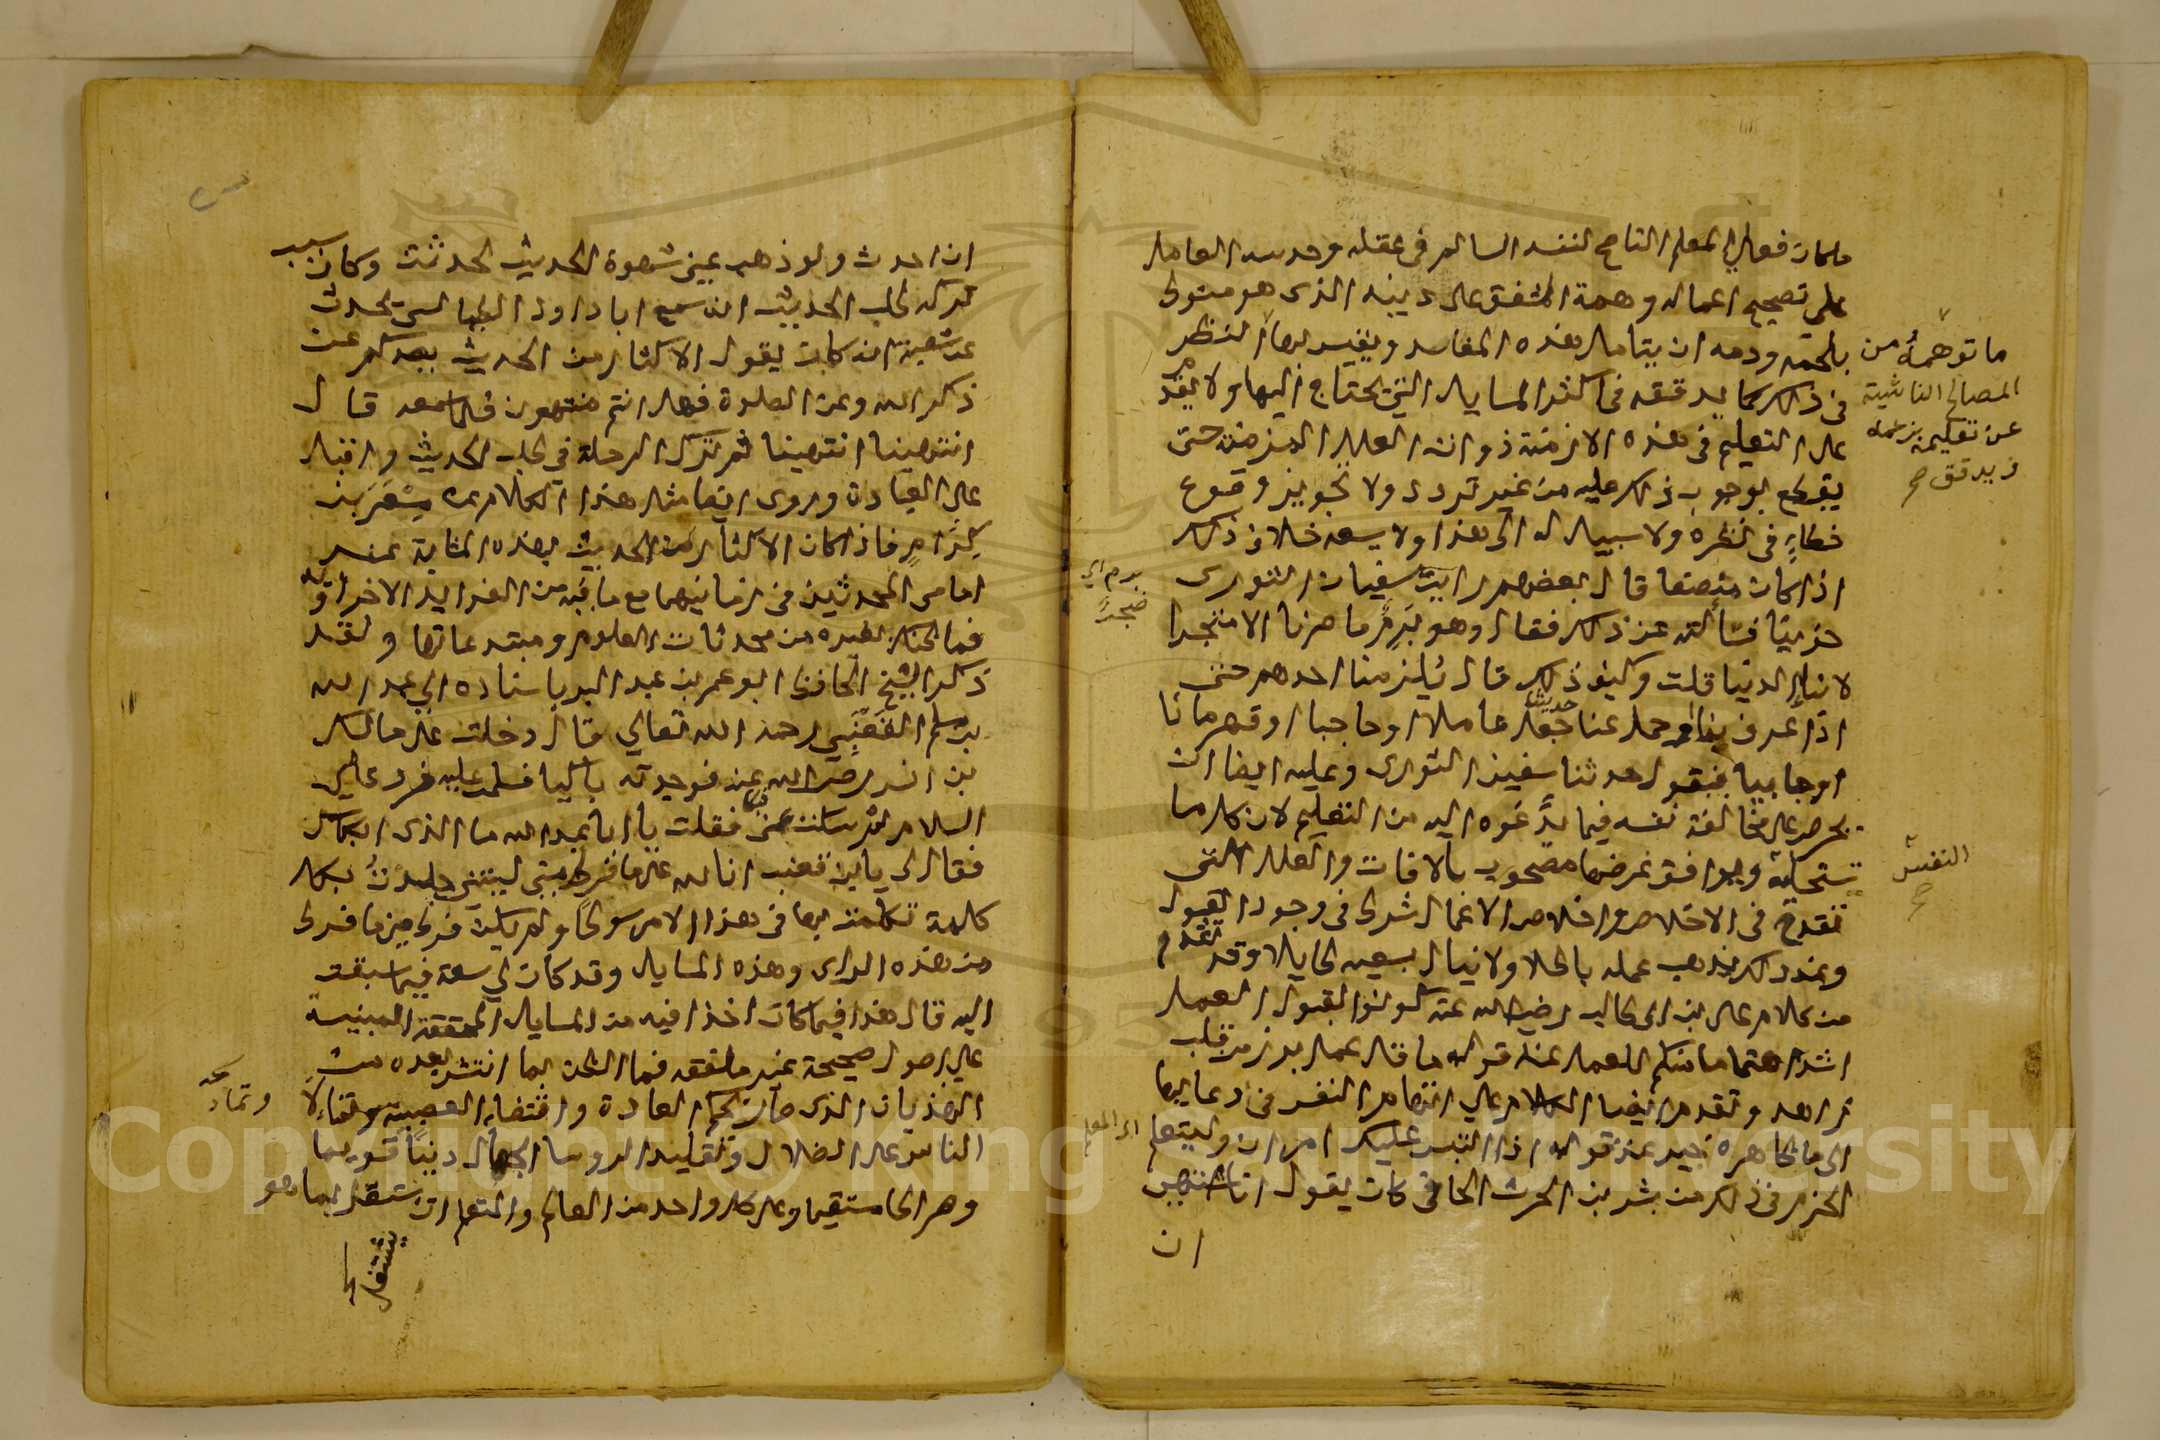 فعلى المعلم الناصح لنفسه السالم في عقله وحدسه العامل
على تصحيح اعماله وهمة المشفق على دينه الذي هو متولي
بلحمه ودمه ان يتامل هذه المفاسد ويقيس بها النظر
في ذلك كما يدققه في اكثر المسايل التي يحتاج اليها ولا يقدم
على التعليم في هذه الازمنة ذوات العلل المزمنة حتى
يقطع بوجوب ذلك عليه من غير تردد ولا تجويز وقوع
خطاءٍ في نظره ولا سبيل له الى هذا ولا يسعه خلاف ذلك
اذا كان منصفا قال بعضهم رايت سفيان الثوري
حزينا فسألته عن ذلك فقال وهو بَرِمٌ ما صرنا الا متجرا
لابناء الدنيا قلت وكيف ذلك قال يُلزمنا احدهم حتى
اذا عرف بنا وحمل عنا حديثا جعل عاملا او حاجبا او قهرمانا
او جابيا فيقول حدثنا سفين الثوري وعليه ايضا ان
يحرص على مخالفة نفسه فيما يدعوه اليه من التعليم لان كل ما
تستحليه ويوافق غرضها مصحوب بالافات والعلل التي
تقدح في الاخلاص واخلاص الاعمال شرط في وجود القبول
وعند ذلك يذهب عمله باطلا ولا ينال بسعيه طايلا وقد تقدم
من كلام علي بن ابي طالب رضي الله عنه كونوا لقبول العمل
اشد اهتماما منكم للعمل عنه قوله ما قل عمل برز من قلب
زاهد وتقدم ايضا الكلام على اتهام النفس في دعايها
الى ما ظاهره خير عند قوله اذا التبس عليك امران وليتعلم
الحزم في ذلك من بشر بن الحرث الحافي كان يقول انا اشتهي
ان
ما توهمهُ من
المصالح الناشية
عن تعليمه بزعمه
برم اي
ضجر
النفس
اي المعلم
ان احدث ولو ذهب عني شهوة الحديث لحدثت وكان سبب
تركه طلب الحديث انه سمع ابا داود الطيالسي يحدث
عن شعبة انه كان يقول الاكثار من الحديث يصدكم عن
ذكر الله وعن الصلوة فهل انتم منتهون فلما سمعه قال
انتهينا انتهينا ثم ترك الرحلة في طلب الحديث واقبل
على العبادة وروى ايضا مثل هذا الكلام عن مِسْعَر بن
كِدَامٍ فاذا كان الاكثار من الحديث بهذه المثابة عند
امامي المحدثين في زمانيهما مع ما فيه من الفوايد الاخراوية
فما ظنك بغيره من محدثات العلوم ومبتدعاتها ولقد
ذكر الشيخ الحافظ ابو عمر بن عبد البر باسناده الى عبد الله
بن مسلم القَعْنَبي رحمه الله تعالى قال دخلت على مالك
بن انس رضي الله عنه فوجدته باكيا فسلمت عليه فرد علي
السلام ثم سكت عني فقلت يا ابا عبد الله ما الذي ابكاك
فقال لي يا ابن قعنب انا لله على ما فرط مني ليتني جلدتُ بكل
كلمة تكلمت بها في هذا الامر سوطا ولم يكن فرط مني ما فرط
من هذه الراي وهذه المسايل وقد كان لي سعة فيما سبقت
اليه قال هذا فيما كان اخذا فيه من المسايل المحققة المبنية
على اصول صحيحة عند ما نفقه فما الظن بما انتشر بعده من
الهذيان الذي صار بحكم العادة واقتفاء العصبية
الناس على الضلال وتقليد الروسا الجهال دينًا قويما
وصراطا مستقيما وعلى كل واحد من العالم والمتعلم ان يشتغل بما هو
وتماد